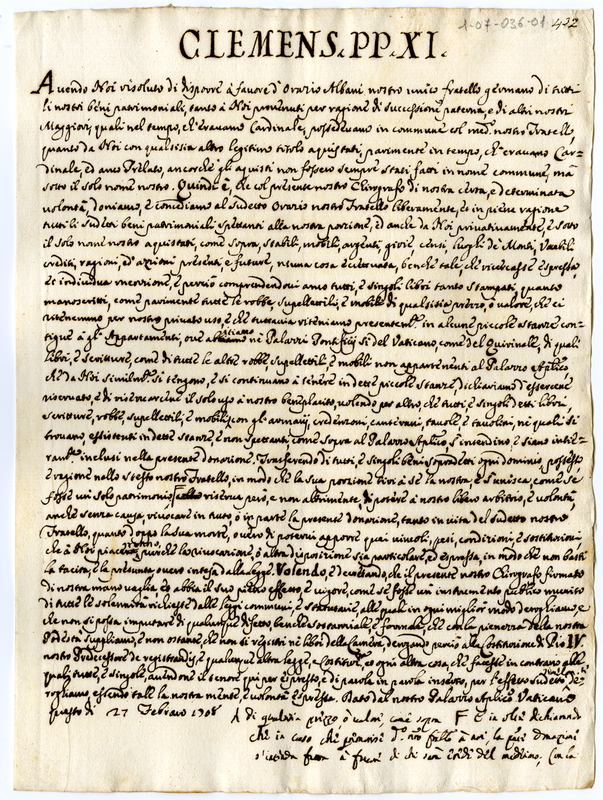 1-07-036-01 422
CLEMENS. PP. XI.
Avendo Noi risoluto di disporre à favore d'Orazio Albani nostro unico fratello germano di tutti
li nostri beni patrimoniali, tanto à Noi provenuti per ragione di successione paterna, e di altri nostri
Maggiori, quali nel tempo, ch'eravamo Cardinale, possedevamo in commune col med.° nostro Fratello,
quanto da Noi con qualsisia altro legitimo titolo aquistati, parimente in tempo, ch'eravamo Car-
dinale, ed anco Prelato, ancorche gli aquisti non fossero sempre stati fatti in nome commune, mà
sotto il solo nome nostro. Quindi è, che col presente nostro Chirografo di nostra certa, e determinata
volontà, doniamo, e concediamo al sudetto Orazio nostro Fratello liberamente, et in piena ragione
tutti li sudetti beni patrimoniali spettanti alla nostra porzione, ed anche da Noi privativamente, e sotto
il solo nome nostro aquistati, come sopra, stabili, mobili, argenti, gioie, censi, luoghi de Monti, Vacabili
crediti, ragioni, ed azzioni presenti, e future, niuna cosa eccettuata, benche tale, che ricercasse espressa,
et individua menzione, e perciò comprendendovi anco tutti, e singoli libri tanto stampati, quanto
manoscritti, come parimente tutte le robbe, supellettili, e mobili di qualsisia prezzo, ò valore, che ci
ritenemmo per nostro privato uso, e che tuttavia riteniamo presentem.te in alcune piccole stanze con-
tigue à gl'Appartamenti, ove abitiamo ne Palazzi Pontificij sì del Vaticano, come del Quirinale, di quali
libri, e scritture, come di tutte le altre robbe, supellettili, e mobili non appartenenti al Palazzo Aplico
che da Noi similm.te si tengono, e si continuano à tenere in dette piccole stanze, dichiariamo d'essercene
riservato, e di riservarcene il solo uso à nostro beneplacito, volendo per altro, che tutti, e singoli detti libri,
scritture, robbe, supellettili, e mobili, con gl'armarij, credenzoni, canterani, tavole, e tavolini, ne quali si
trovano, esistenti in dette stanze, e non spettanti, come sopra al Palazzo Aplico, s'intendino, e siano intie-
ram.te inclusi nella presente donazione. Trasferendo di tutti, e singoli beni sopradetti ogni dominio, possesso,
e ragione nello stesso nostro Fratello, in modo che la sua porzione tiri à sè la nostra, e s'unisca, come se
fosse un solo patrimonio riserva però, e non altrimente, di potere à nostro libero arbitrio, e volontà,
anche senza causa, rivocare in tutto, ò in parte la presente donazione, tanto in vita del sudetto nostro
Fratello, quanto doppo la sua morte, ò vero di potervi apporre quei vincoli, pesi, condizioni, e sostituzioni
che à Noi piacerà, purche la rivocazione, ò altra disposizione sia particolare, et espressa, in modo che non basti
la tacita, e la presunta overo intesa dalla legge. Volendo, e decretando, che il presente nostro Chirografo firmato
di nostra mano vaglia, et abbia il suo pieno effetto, e vigore, come se fosse un instrumento publico munito
di tutte le solennità richieste dalle leggi communi, e statutarie, alle quali in ogni miglior modo deroghiamo, e
che non si possa imputare di qualunque difetto benche sostanziale, e formale, che con la pienezza della nostra
Podestà suppliamo, e non ostante, che non si registri ne libri della Camera, derogando perciò alla Costituzione di Pio IV.
nostro Predecessore de registrandis, e qualunque altra legge, e Costituz.e, et ogni altra cosa, che facesse in contrario alle
quali tutte, e singole, avendone il tenore qui per espresso, e di parola in parola inserto, per l'effetto sudetto de-
roghiamo, essendo tale la nostra mente, e volontà espressa. Dato dal nostro Palazzo Aplico Vaticano
questo dì 27 Febraro 1708
A di qualsisia prezzo, ò valore, come sopra F e in oltre dichiarando
che in caso che